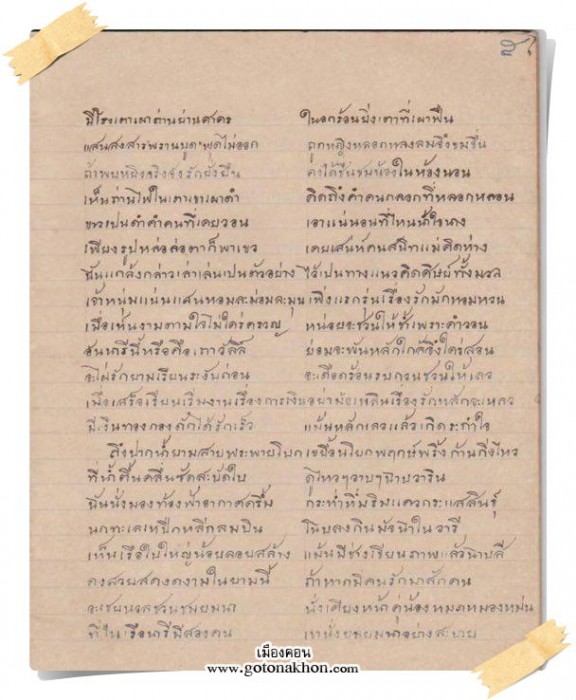 มีโรงเตาเผาถ่านย่านศาลา ในอกร้อนยิ่งเตาที่เผาฟืน
แสนสงสารพรานบุญพูดไม่ออก ถูกหญิงหลอกหลงลมจึงขมขื่น
ถ้าพบหญิงจริงจังรักยั่งยืน คงได้ชื่นชมน้องในห้องนอน
เห็นถ่านไฟในเตาเขาเผาดำ คิดถึงคำคนกลอกที่หลอกหลอน
ขาวเป็นดำคำคนที่เคยวอน เอาแน่นอนที่ไหนน้ำใจนาง
เพียงรูปหล่อล่อตาก็พาเขว เคยเสน่ห์คนสนิทแม่คิดห่าง
ฉันแกล้งกล่าวเล่าเล่นเป็นตัวอย่าง ไว้เป็นทางแนวคิดศิษย์ทั้งมวล
เจ้าหนุ่มแน่นแสนหอมละม่อมละมุน เพิ่งแรกรุ่นเรื่องรักมักหอมหวน
เมื่อเห็นงามตามใจไม่ใคร่ครวญ หน่อยจะชวนให้ช้ำเพราะคำวอน
อันนารีนี้หรือคือเถาวัลย์ ย่อมจะพันหลักใกล้ซึ่งใคร่สอน
จะใฝ่รักยามเรียนระงับก่อน จะเดือดร้อนรบกวนชวนให้เลว
เมื่อเสร็จเรียนเริ่มงานเรื่องการเงิน อย่ามัวเพลินเรื่องรักหนักจะเหลว
มีเงินทองกองดักได้รักเร็ว แม้นหลักเลวแล้วเกิดระกำใจ
ถึงปากน้ำยามสายพระพายโบก เขยื้อนโยกพฤกษ์พริ้งก้านกิ่งไหว
ที่น้ำตื้นคลื่นซัดสะบัดใบ ดูไหวๆวาบๆปลาบวาริน
ฉันนั่งมองท้องฟ้าอากาศครึ้ม กระทำทึ่มริมแควกระแสสินธุ์
นกทะเลเหปีกหลีกลมบิน โบยลงกินมัจฉาในวารี
เห็นเรือใบใหญ่น้อยลอยสล้าง แม้นมีช่างเขียนภาพ
คงสวยสดงดงามในยามนี้ ถ้าหากมีคนรักมาสักคน
จะชมชวน นั่งเคียงหน้าคู่น้องหมดหมองหม่น
ที่ในเรือนารีมีสองคน อย่างสบาย
เมืองคอน
www.gotonakhon.com